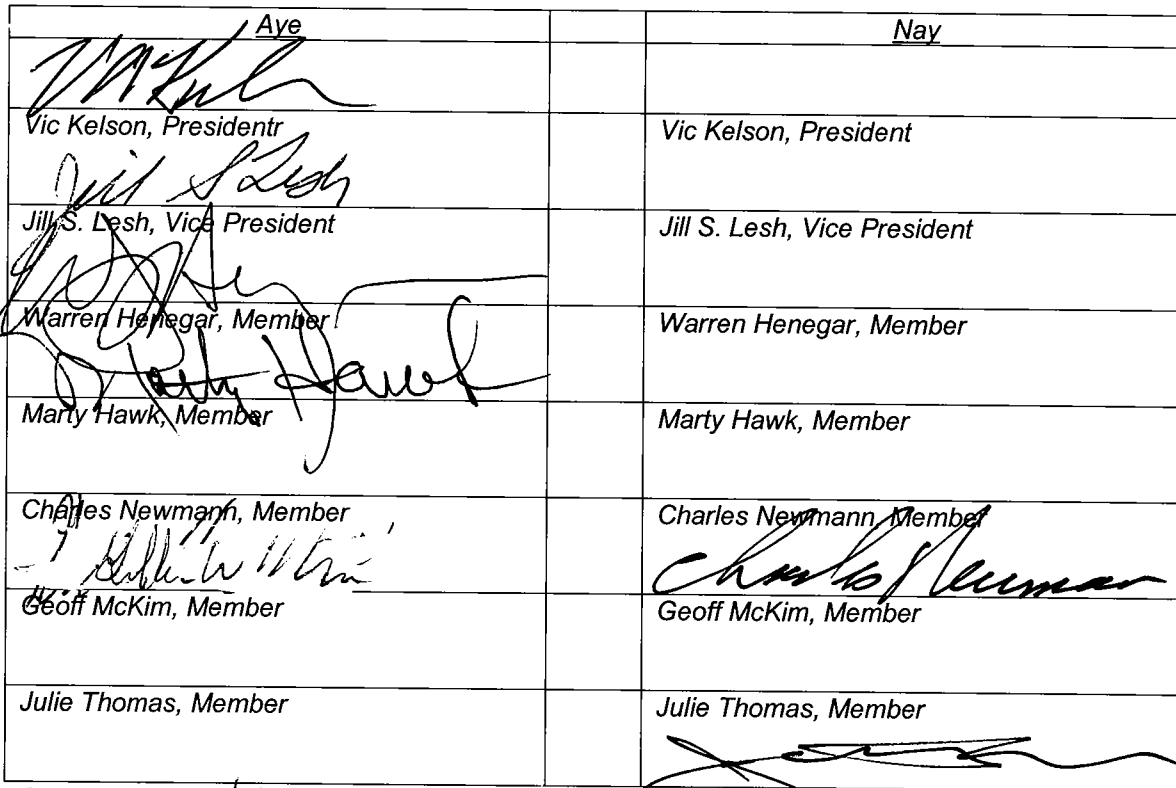 Aye Nay
Vic Kelson, Presidentr Vic Kelson, President
Jill S Lesh
Jill S. Lesh, Vice President Jill S. Lesh, Vice President
Warren Henegar, Member Warren Henegar, Member
Marty Hawk
Marty Hawk, Member Marty Hawk, Member
Charles Newmann, Member Charles Newmann, Member
Charles Newman
Geoff McKim, Member Geoff McKim, Member
Julie Thomas, Member Julie Thomas, Member